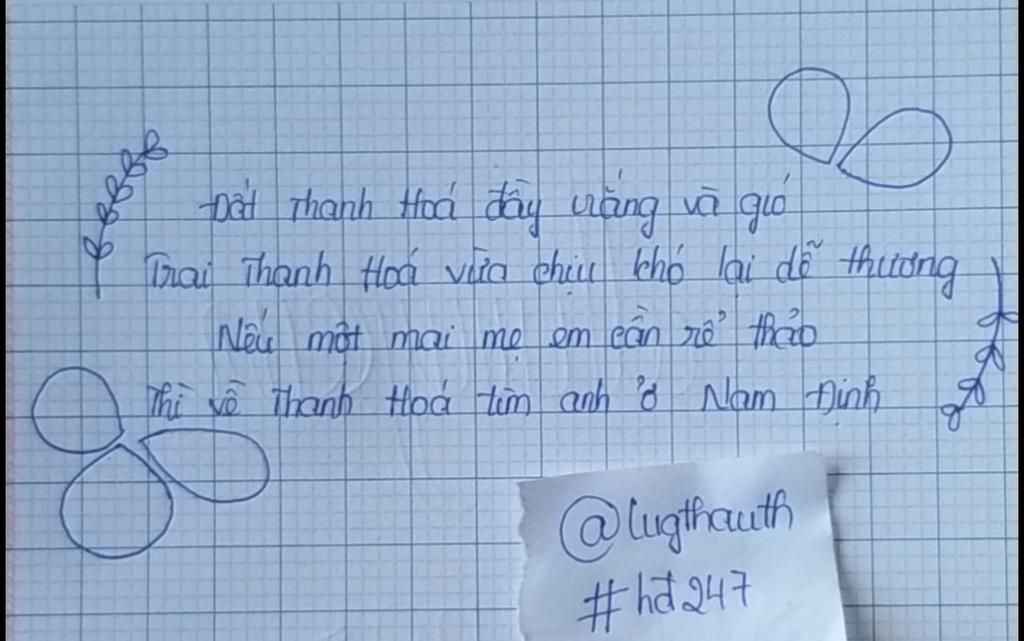 Đất Thanh Hoá đầy nắng và gió
Trai Thanh Hoá vừa chịu khó lại dễ thương
Nếu một mai mẹ em cần rể thảo
Thì về Thanh Hoá tìm anh ở Nam Định
@lugthauth
#hđ247